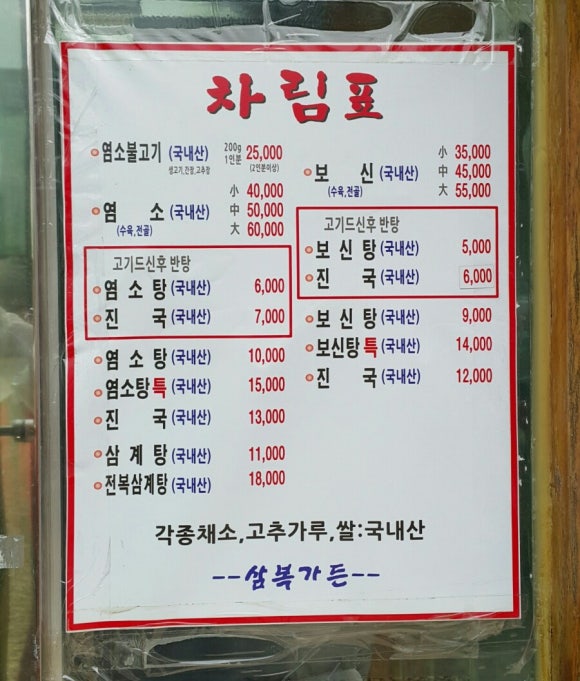 차림표
염소불고기 (국내산) 200g 1인분 25,000
생고기,간장,고추장 (2인분이상)
염 소 (국내산) 小 40,000
(수육,전골) 中 50,000
大 60,000
고기드신후 반탕
염 소 탕 (국내산) 6,000
진 국 (국내산) 7,000
염 소 탕 (국내산) 10,000
염소탕 특 (국내산) 15,000
진 국 (국내산) 13,000
삼 계 탕 (국내산) 11,000
전복삼계탕 (국내산) 18,000
보 신 (국내산) 小 35,000
(수육,전골) 中 45,000
大 55,000
고기드신후 반탕
보 신 탕 (국내산) 5,000
진 국 (국내산) 6,000
보 신 탕 (국내산) 9,000
보신탕 특 (국내산) 14,000
진 국 (국내산) 12,000
각종채소,고추가루,쌀:국내산
--삼복가든--